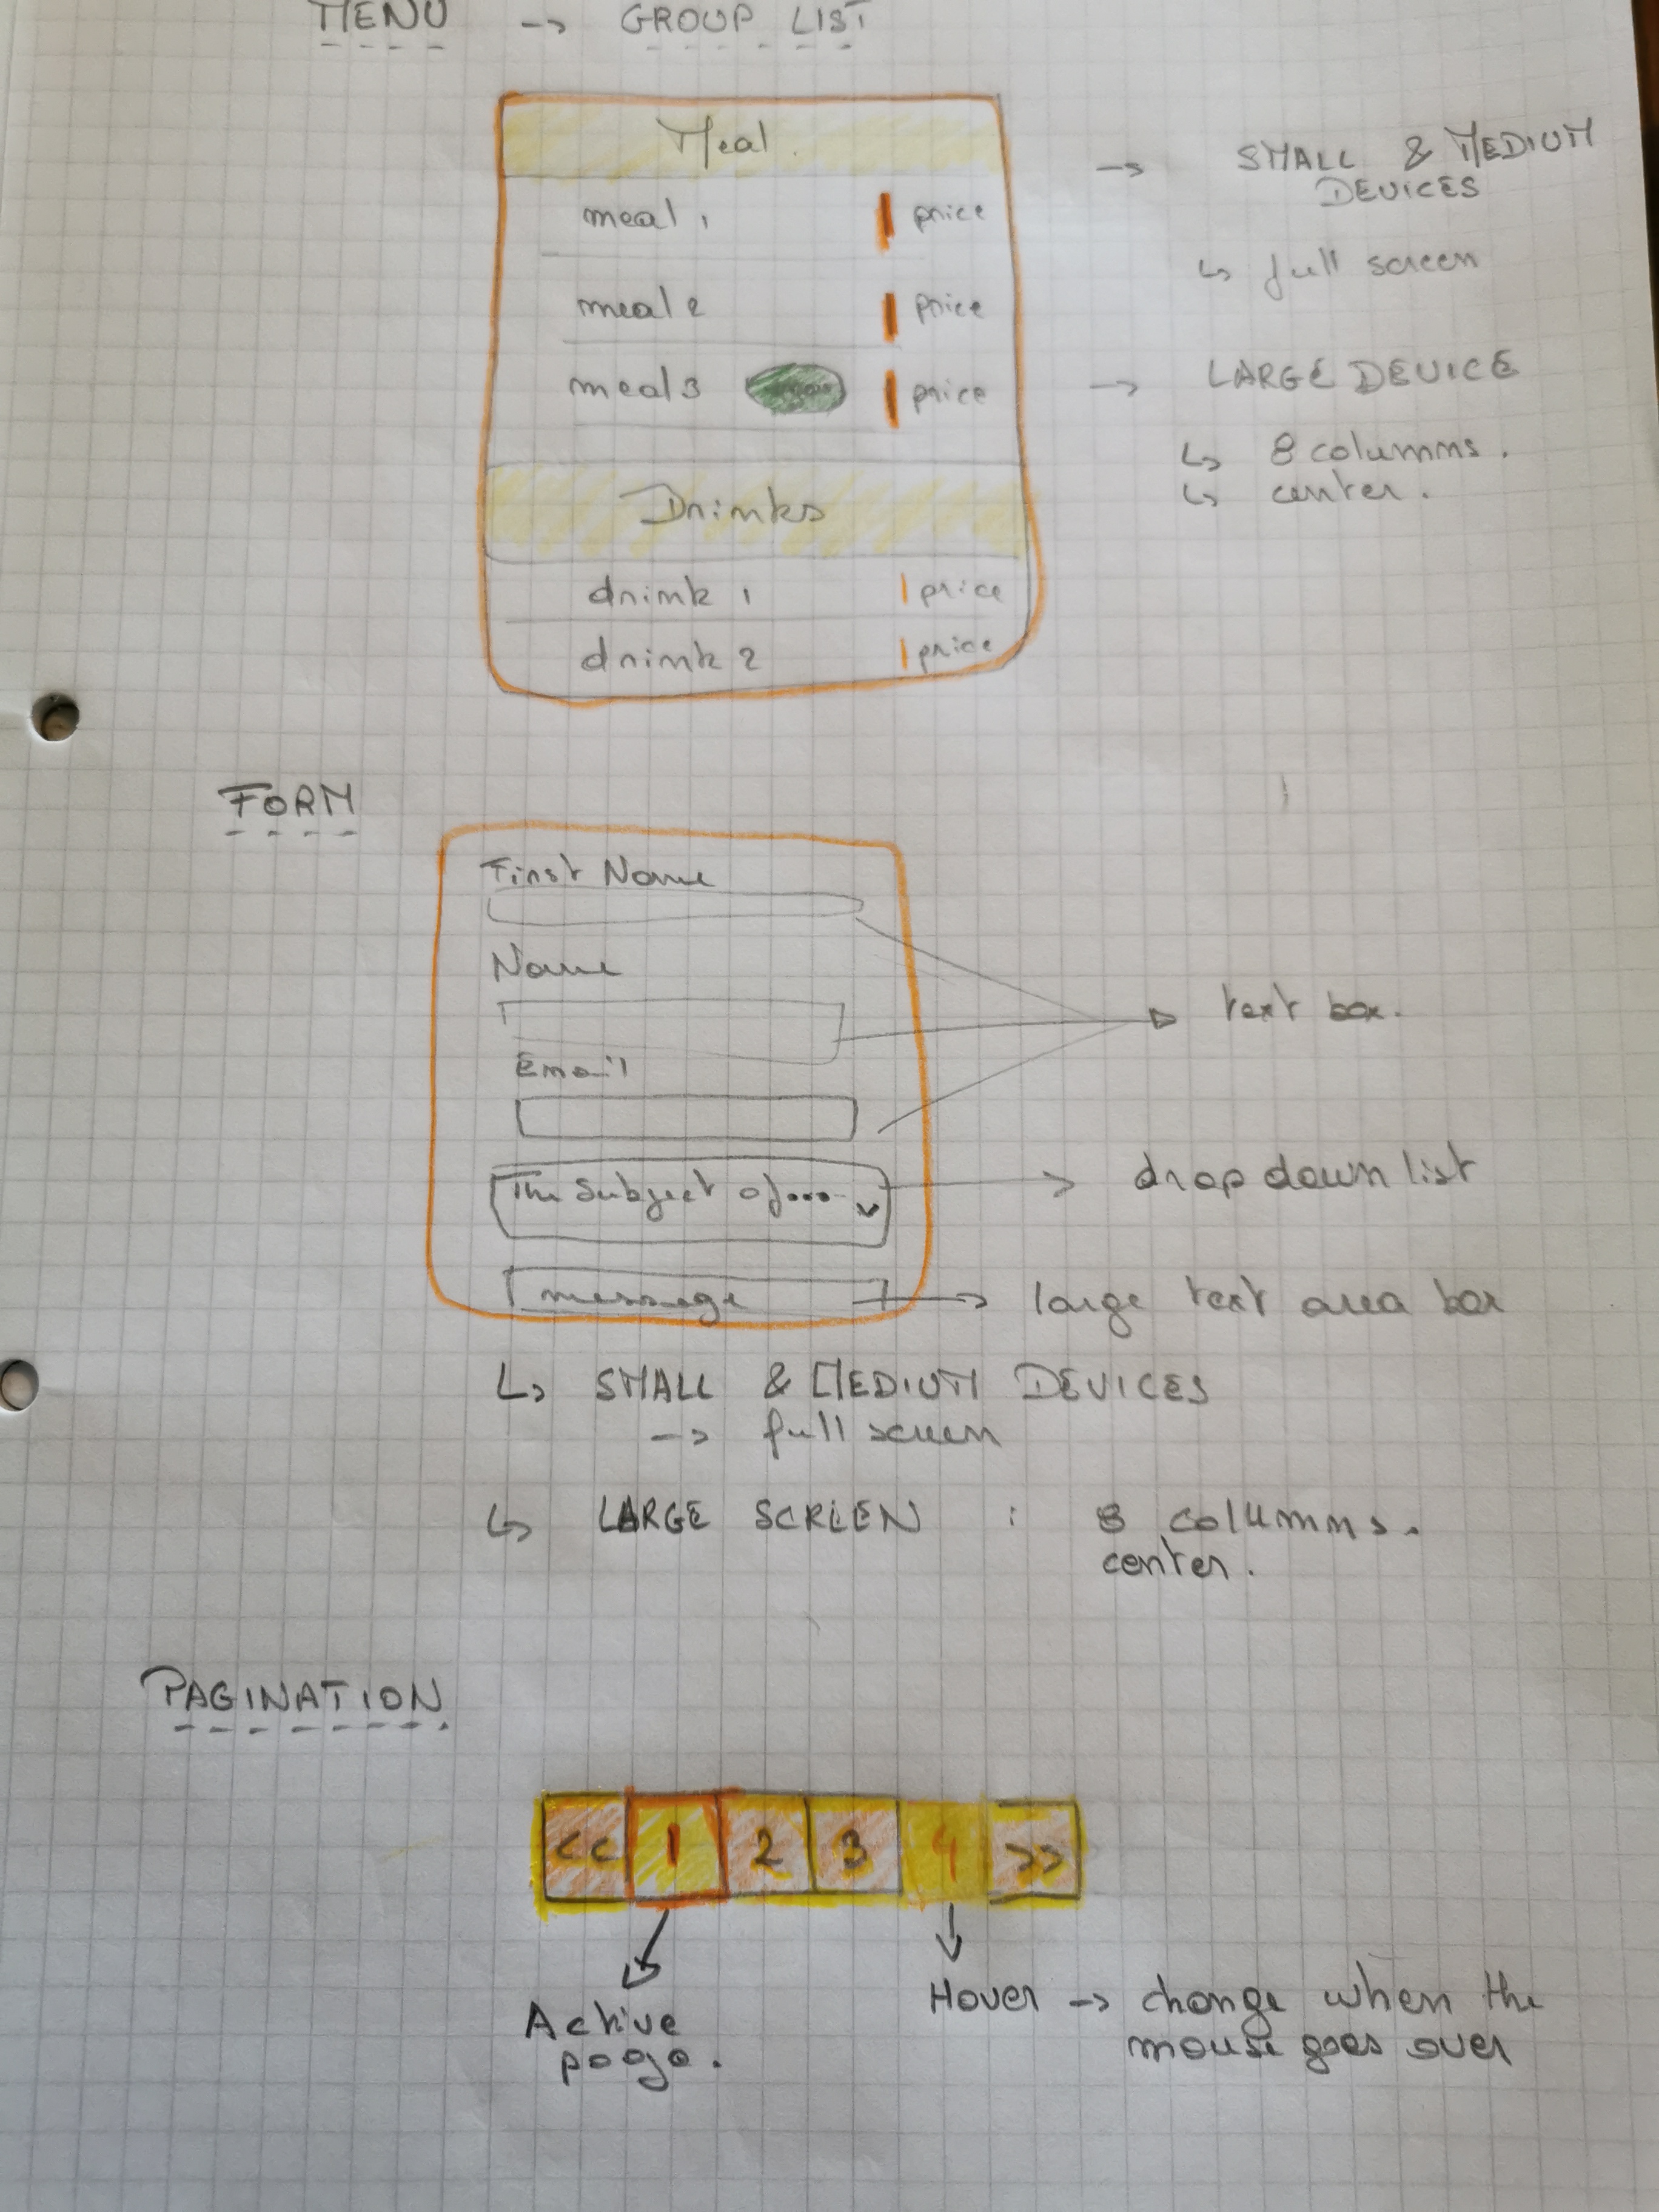 MENU -> GROUP LIST
Meal
meal 1 price
meal 2 price
meal 3 price
Drinks
drink 1 price
drink 2 price
-> SMALL & MEDIUM
DEVICES
↳ full screen
-> LARGE DEVICE
↳ 8 columns.
↳ center.
FORM
First Name
Name
Email
The Subject of...
message
text box.
drop down list
large text area box
↳ SMALL & MEDIUM DEVICES
-> full screen
↳ LARGE SCREEN : 8 columns.
center.
PAGINATION
<< 1 2 3 4 >>
Active
page.
Hover -> change when the
mouse goes over